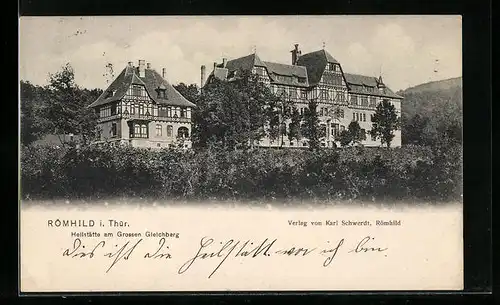 RÖMHILD i. Thür.
Heilstätte am Grossen Gleichberg
Verlag von Karl Schwerdt, Römhild
dis ist die Heilstätt wo ich bin